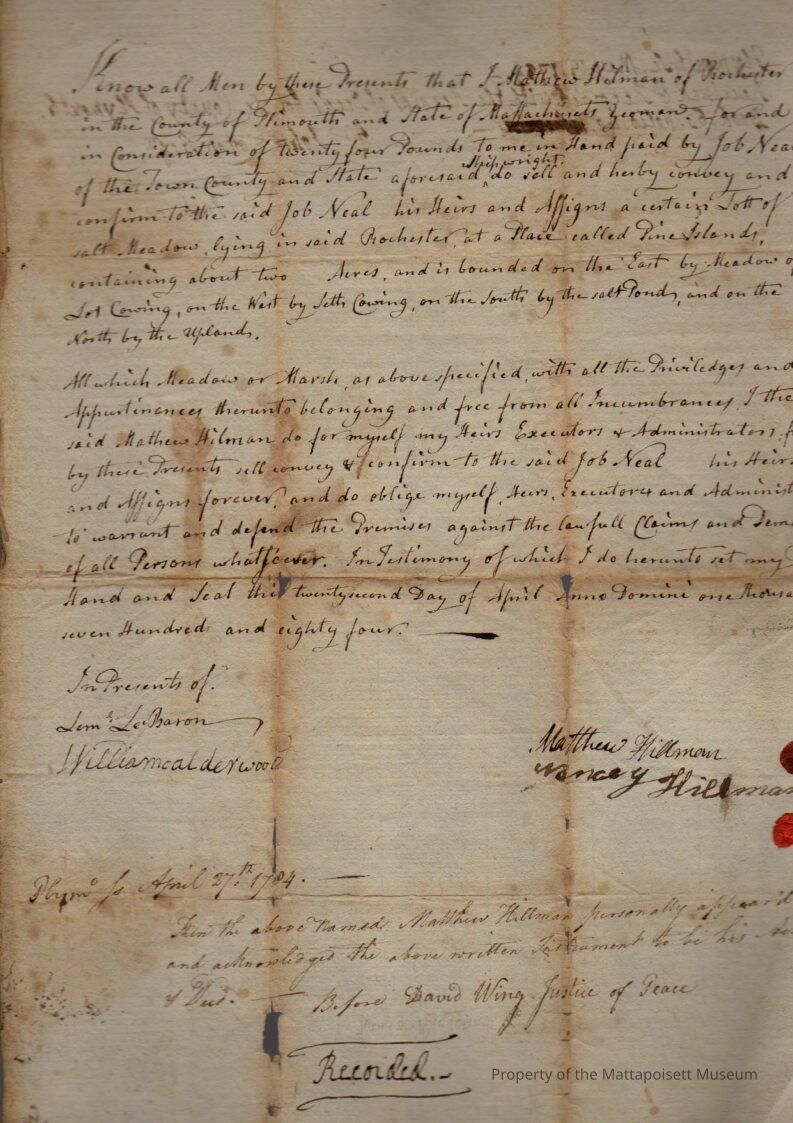 Know all Men by these Presents that I Mathew Hilman of Rochester
in the County of Plimouth and State of Massachusets Yeoman. for and
in Consideration of twenty four Pounds to me in Hand paid by Job Neal
Shipwright
of the Town County and State aforesaid, do sell and herby convey and
confirm to the said Job Neal his Heirs and Assigns a certain Lott of
salt Meadow, lying in said Rochester, at a Place called Pine Islands,
containing about two Acres, and is bounded on the East by Meadow of
Lot Cowing, on the West by Seth Cowing, on the South by the salt Ponds, and on the
North by the Uplands.
All which Meadow or Marsh, as above specified, with all the Priviledges and
Appurtinences therunto belonging and free from all Incumbrances, I the
said Mathew Hilman do for myself my Heirs Executors & Administrators,
by these Presents sell convey & confirm to the said Job Neal his Heirs
and Assigns forever, and do oblige myself, Heirs, Executors and Administ
to warrant and defend the Premises against the lawfull Claims and Dema
of all Persons whatsoever. In Testimony of which I do herunto set my
Hand and Seal this twentysecond Day of April Anno Domini one thousa
seven Hundred and eighty four.
In Presents of.
Lem.l LeBaron
William calderwood
Matthew Hillman
Nancy Hillman
Plym.o Ss April 27.th 1784.
Then the above named Matthew Hillman personally appear'd
and acknowledged the above written Instrument to be his
& Deed. Before David Wing Justice of Peace
Recorded.
Property of the Mattapoisett Museum